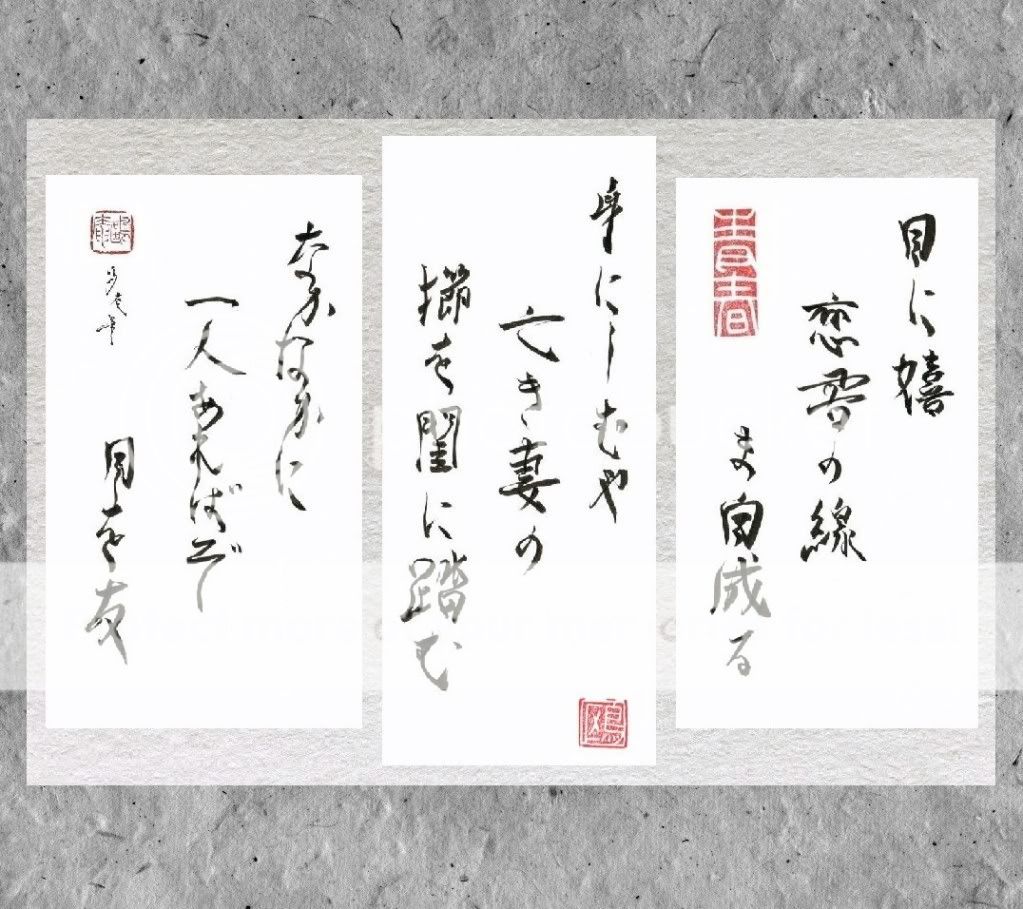 目に嬉
恋君の線
ま白成る
身にしむや
亡き妻の
櫛を閨に踏む
なかなかに
一人あればぞ
月を友